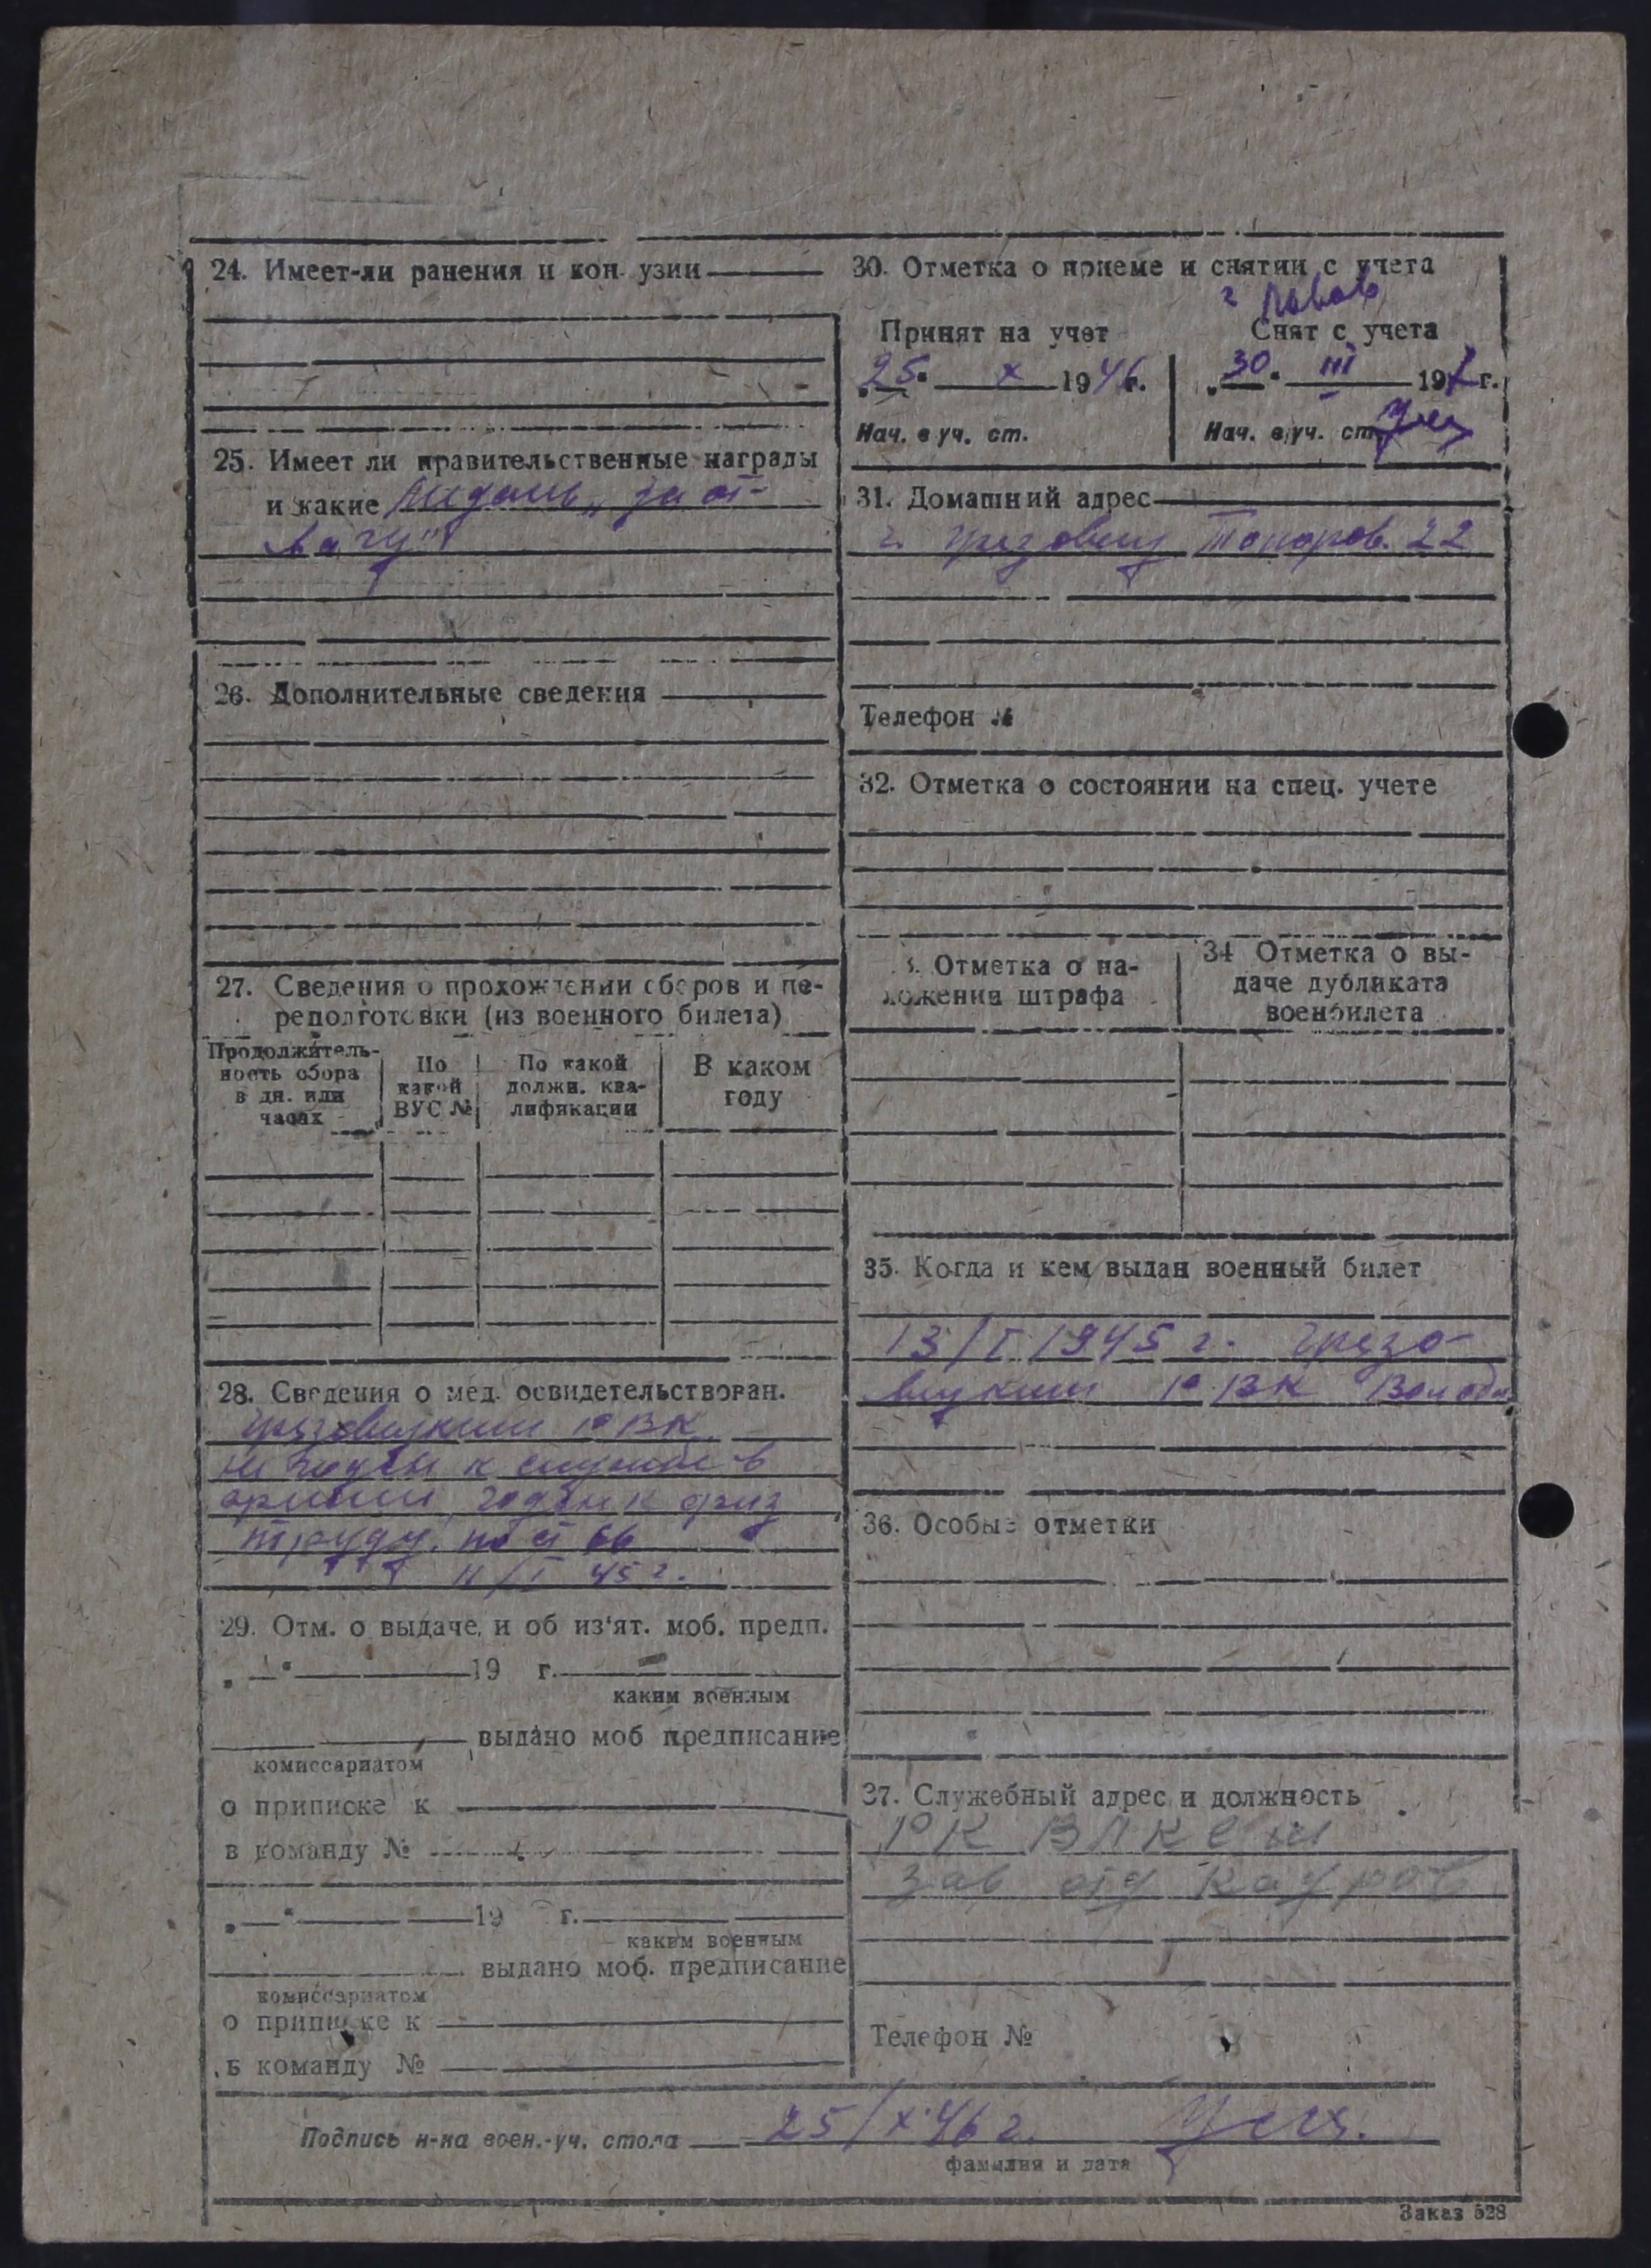 24. Имеет-ли ранения и кон узии
25. Имеет ли правительственные награды
и какие Медаль „За от-
вагу"
26. Дополнительные сведения
27. Сведения о прохождении сборов и пе-
реподготовки (из военного билета)
Продолжитель-
ность сбора
в дн. или
часах
По
какой
ВУС №
По какой
должн. ква-
лификации
В каком
году
28. Сведения о мед. освидетельствован.
Грязовецким РВК
не годен к службе в
армии, годен к физ
труду. по ст 66
11/I 45 г.
29. Отм. о выдаче, и об из'ят. моб. предп.
„ “ 19 г.
каким военным
выдано моб предписание
комиссариатом
о приписке к
в команду №
„ “ 19 г.
каким военным
выдано моб. предписание
комиссариатом
о приписке к
в команду №
30. Отметка о приеме и снятии с учета
Принят на учет
„25“ X 1946 г.
Нач. в уч. ст.
г
Снят с учета
„30“ III 194 г.
Нач. в уч. ст.
31. Домашний адрес
г. Грязовец Топоров. 22
Телефон №
32. Отметка о состоянии на спец. учете
3. Отметка о на-
ложении штрафа
34 Отметка о вы-
даче дубликата
военбилета
35. Когда и кем выдан военный билет
13/I 1945 г. Грязо-
вецким РВК Волог
36. Особые отметки
37. Служебный адрес и должность
РК ВЛКСМ
Зав отд кадров
Телефон №
Подпись н-ка воен.-уч. стола 25/X 46 г.
фамилия и дата
Заказ 528